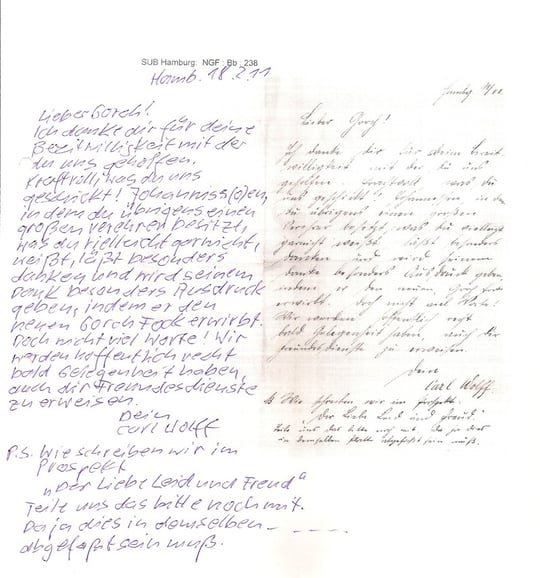 SUB Hamburg: NGF : Bb : 238
Hamb. 18.2.11
Lieber Gorch!
Ich danke dir für deine
Bereitwilligkeit mit der
du uns geholfen.
Kraftvoll, was du uns
geschickt! Johannss(o)en,
in dem du übrigens einen
großen Verehrer besitzt,
was du vielleicht garnicht,
weißt, läßt besonders
danken und wird seinem
Dank besonders Ausdruck
geben, indem er den
neuen Gorch Fock erwirbt.
Doch nicht viel Worte! Wir
werden hoffentlich recht
bald Gelegenheit haben,
auch dir Freundesdienste
zu erweisen.
Dein
Carl Wolff
P.S. Wie schreiben wir im
Prospekt
„Der Liebe Leid und Freud"
Teile uns das bitte noch mit.
Da ja dies in demselben - - - - -
abgefaßt sein muß.
Lieber Gorch!
Ich danke dir für deine Bereit-
willigkeit mit der du uns
geholfen. Kraftvoll was du
uns geschickt! Johannssen, in dem
du übrigens einen großen
Verehrer besitzt, was du vielleicht
garnicht weißt, läßt besonders
danken und wird seinem
Danke besonders Ausdruck geben
indem er den neuen Gorch Fock
erwirbt. Doch nicht viel Worte!
Wir werden hoffentlich recht
bald Gelegenheit haben, auch dir
Freundesdienste zu erweisen.
Dein
Carl Wolff.
Wie schreiben wir im Prospekt.
Der Liebe Leid und Freud"
Teile uns das bitte noch mit. Da ja dies
in demselben abgefaßt sein muß.